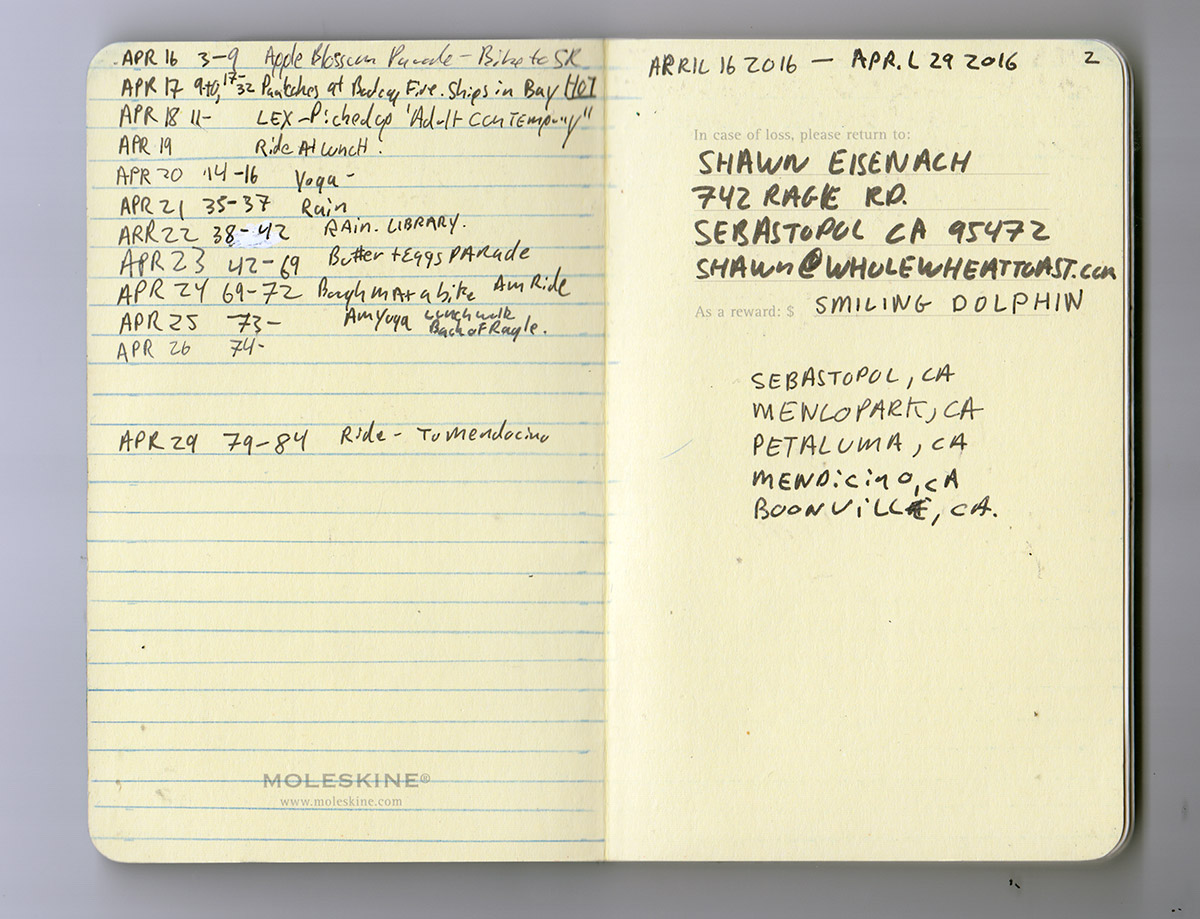 APR 16 3-9 Apple Blossom Parade - Bike to SR
APR 17 9+10, 17-32 at Fire. Ships in Bay HOT
APR 18 11- LEX - Picked up "Adult Contempory"
APR 19 Ride At Lunch.
APR 20 14-16 Yoga -
APR 21 35-37 Rain
APR 22 38-42 RAin. LIBRARY.
APR 23 42-69 Butter + Eggs PARADE
APR 24 69-72 a bike Am Ride
APR 25 73- Am Yoga Lunch walk
Back of Ragle.
APR 26 74-
APR 29 79-84 Ride - To Mendocino
MOLESKINE®
www.moleskine.com
APRIL 16 2016 — APRiL 29 2016 2
In case of loss, please return to:
SHAWN EISENACH
742 RAGLE RD.
SEBASTOPOL CA 95472
SHAWN@WHOLEWHEATTOAST.com
As a reward: $ SMILING DOLPHIN
SEBASTOPOL, CA
MENLOPARK, CA
PETALUMA, CA
MENDiCiNO, CA
BOONViLLE, CA.